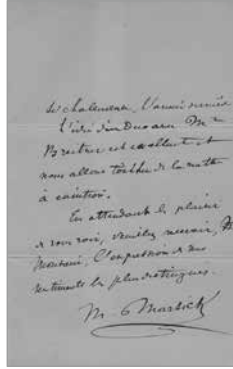 si chaleureux, l'année dernière
L'idée d'un Duo avec Mr
est excellent et
nous allons tâcher de la mettre
à exécution.
En attendant le plaisir
de vous voir, veuillez recevoir,
Monsieur, l'expression de mes
sentiments les plus distingués.
M. Marsick